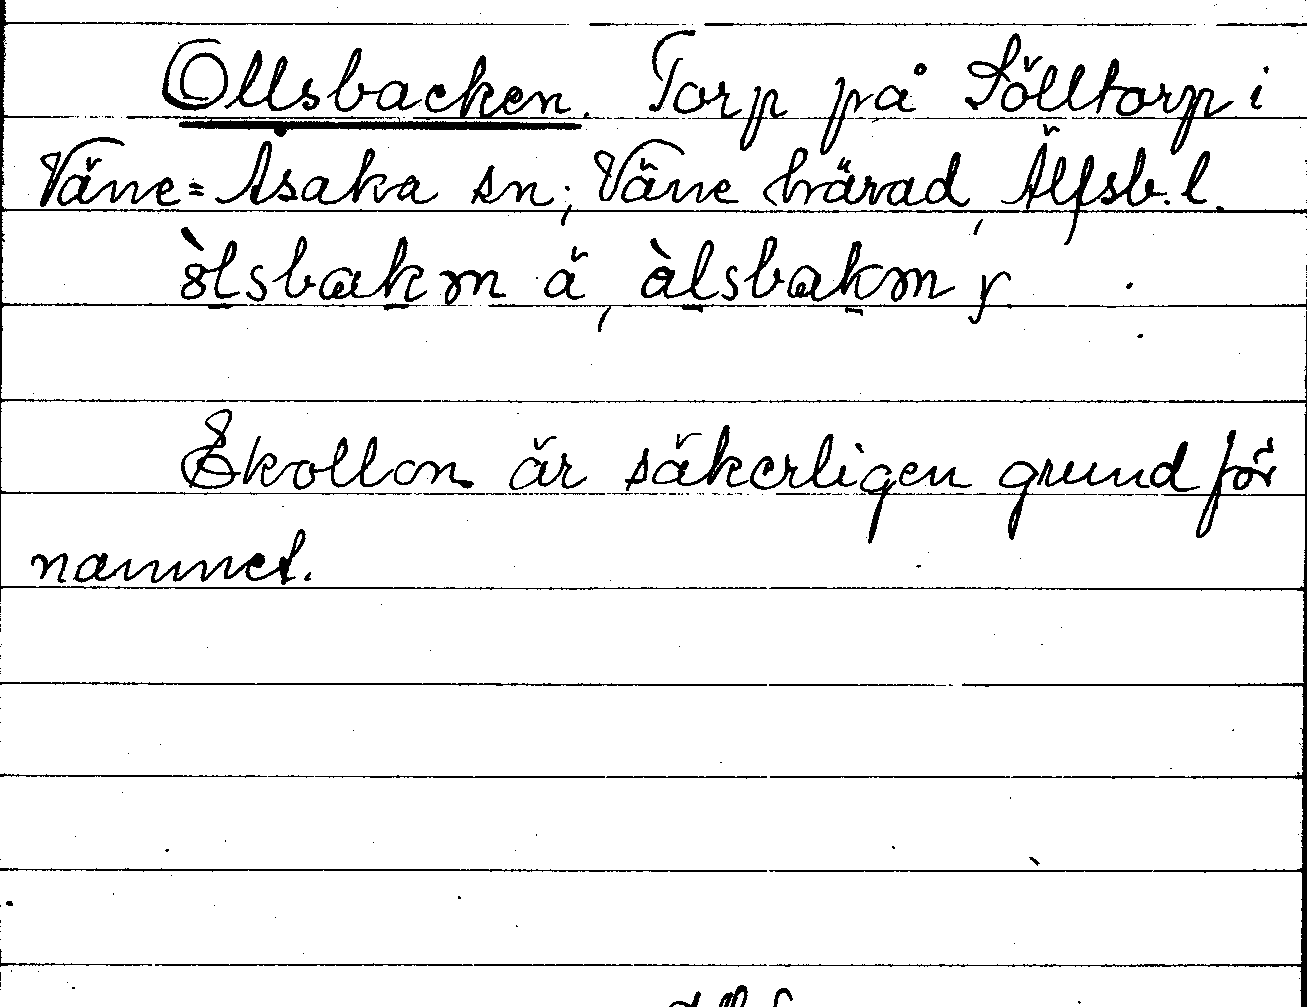 Ollsbacken. Torp på Sölltorp i
Väne=Åsaka sn; Väne härad, Älfsb. l.
òlsbakm ä, àlsbakm y
Ekollon är säkerligen grund för
namnet.